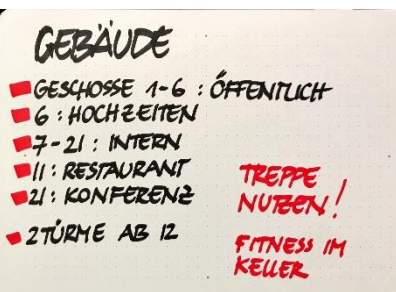 GEBÄUDE
GESCHOSSE 1-6 : ÖFFENTLICH
6 : HOCHZEITEN
7-21 : INTERN
11 : RESTAURANT
21 : KONFERENZ
2 TÜRME AB 12
TREPPE
NUTZEN!
FITNESS IM
KELLER